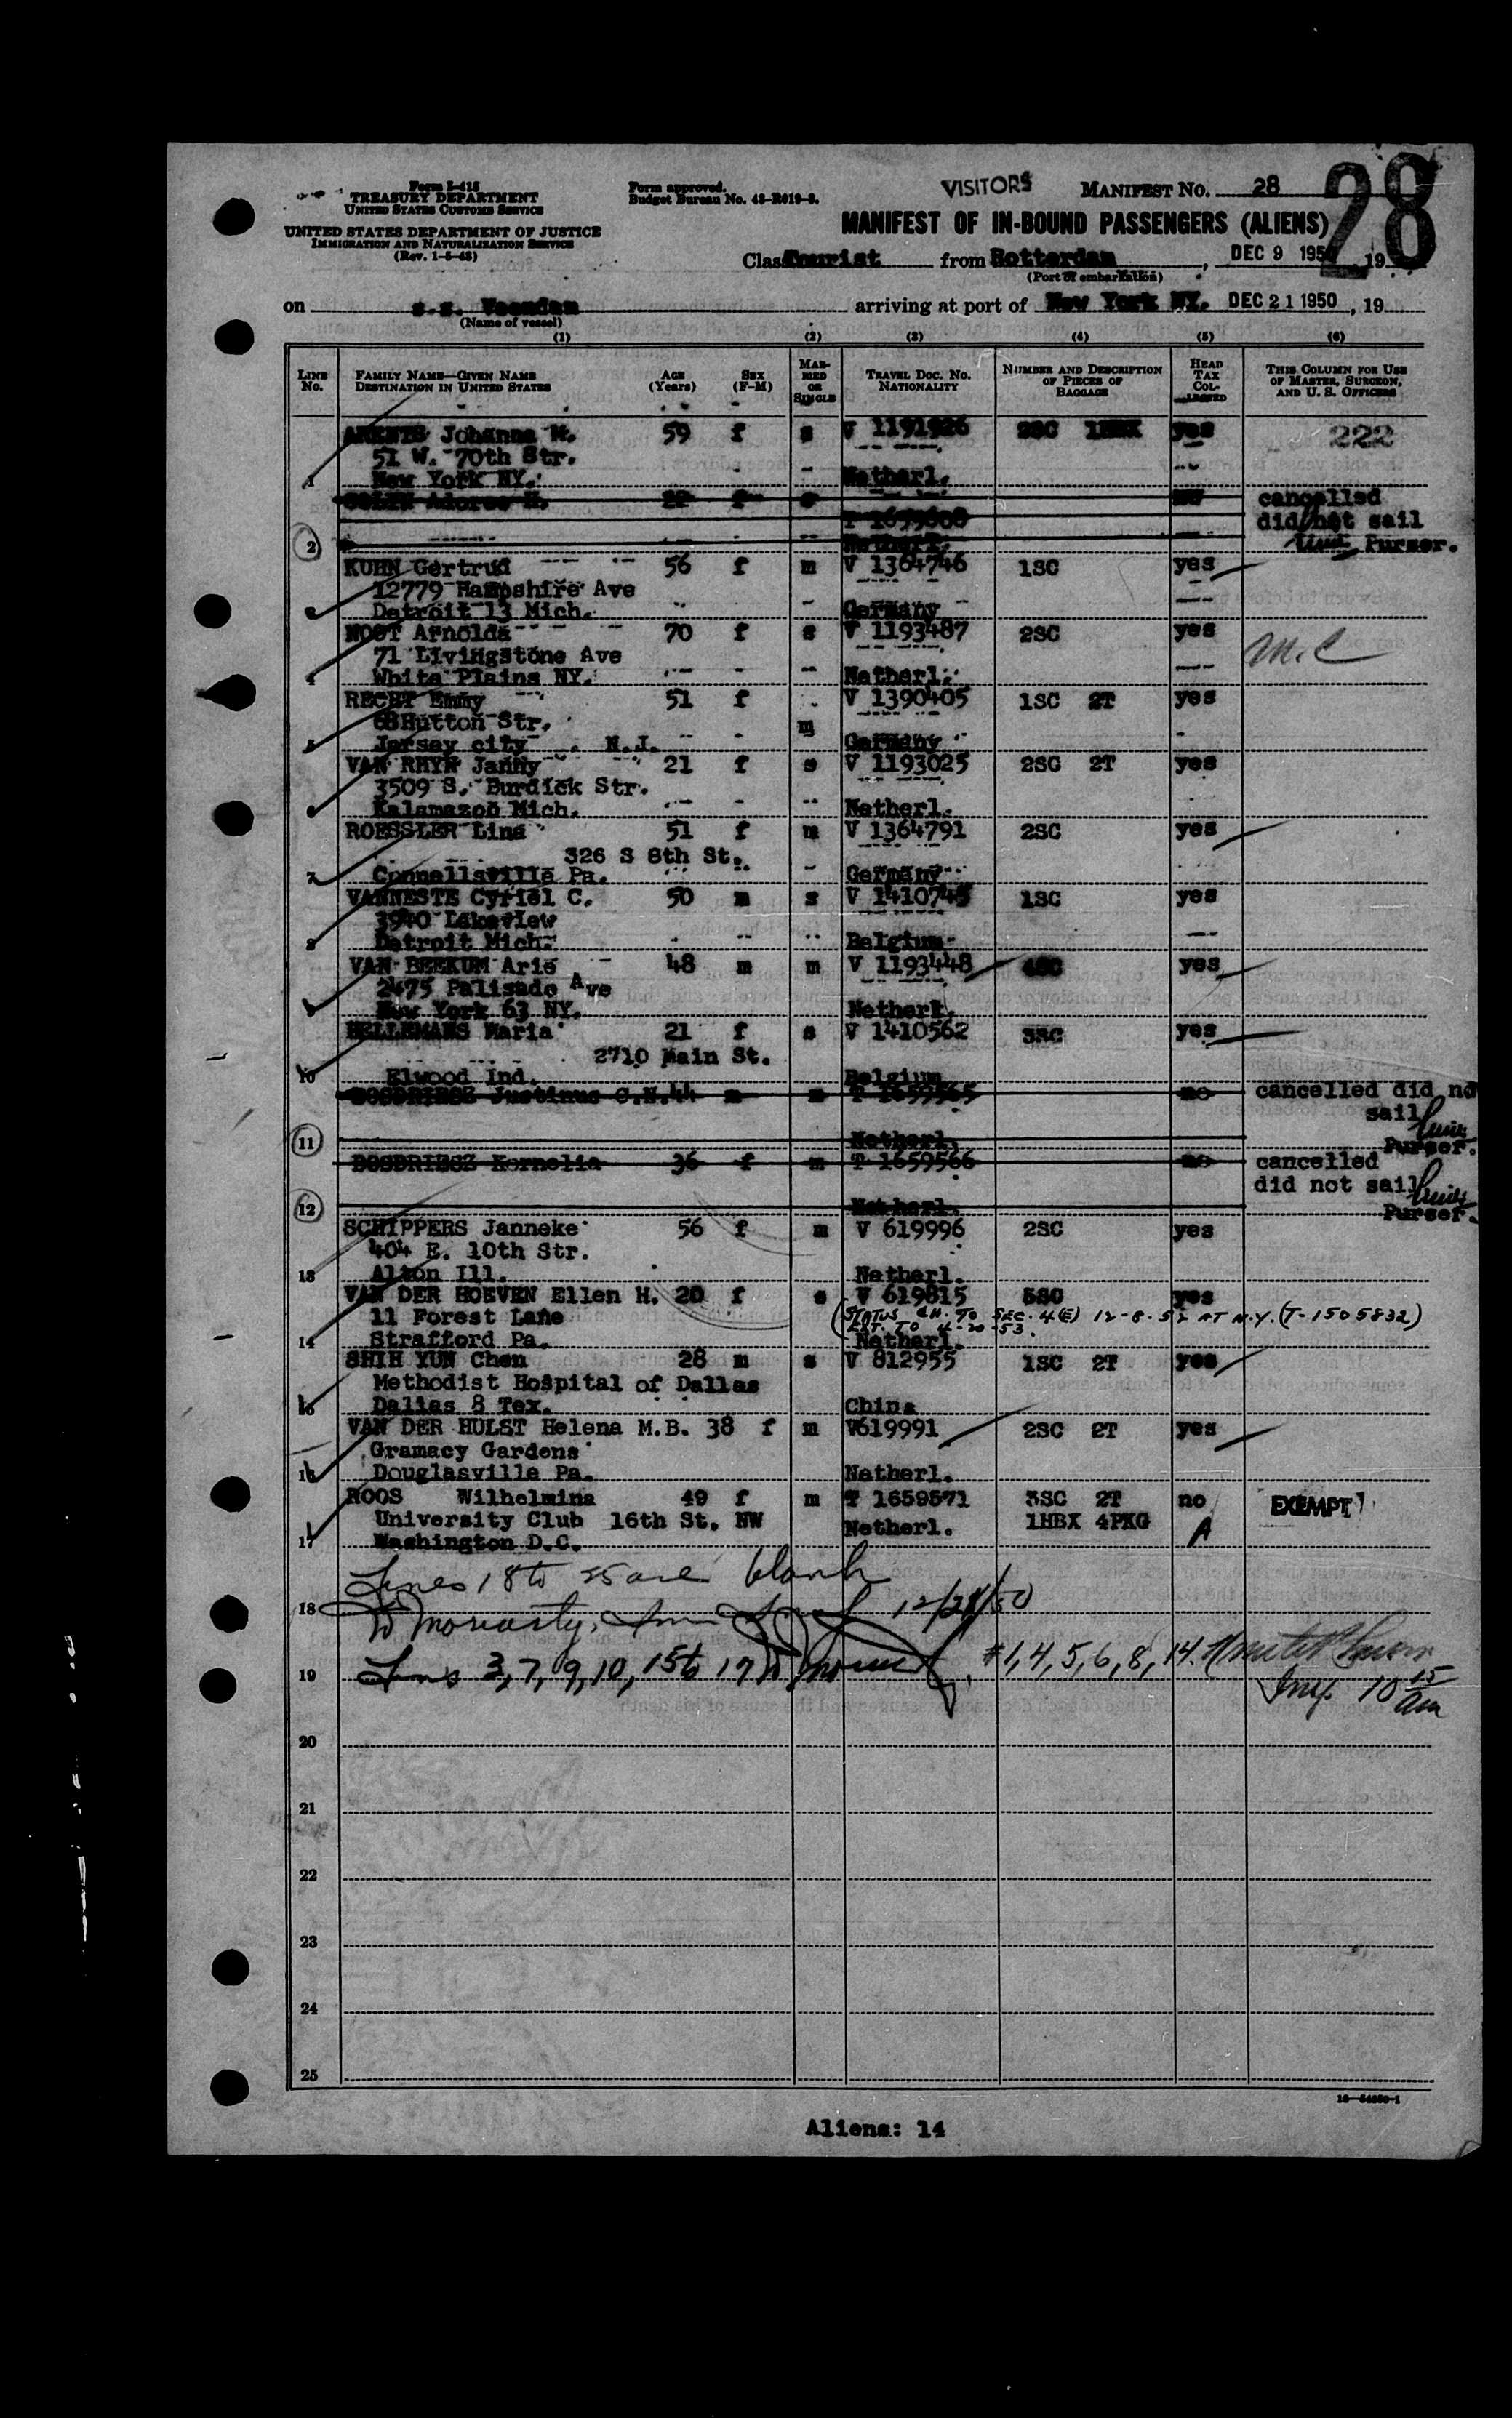 Form I-415
TREASURY DEPARTMENT
UNITED STATES CUSTOMS SERVICE
UNITED STATES DEPARTMENT OF JUSTICE
IMMIGRATION AND NATURALIZATION SERVICE
(Rev. 1-5-48)
Form approved.
Budget Bureau No. 43-R019-3.
VISITORS
MANIFEST NO. 28
28
MANIFEST OF IN-BOUND PASSENGERS (ALIENS)
Class Tourist from Rotterdam, DEC 9 1950, 19
(Port of embarkation)
on s.s. Veendam arriving at port of New York NY. DEC 21 1950, 19
(Name of vessel)
(1) (2) (3) (4) (5) (6)
LINE NO. FAMILY NAME—GIVEN NAME DESTINATION IN UNITED STATES AGE (Years) SEX (F-M) MARRIED OR SINGLE TRAVEL DOC. NO. NATIONALITY NUMBER AND DESCRIPTION OF PIECES OF BAGGAGE HEAD TAX COLLECTED THIS COLUMN FOR USE OF MASTER, SURGEON, AND U. S. OFFICERS
ARENTS Johanna 59 f s V 1191926 2SC 1HBX yes 222
51 W. 70th Str.
1 New York NY. Netherl.
22 f s cancelled
T 1659608 did not sail
2 Netherl. Purser.
KUHN Gertrud 56 f m V 1364746 1SC yes
12779 Hampshire Ave
3 Detroit 13 Mich. Germany
NOOT Arnolda 70 f s V 1193487 2SC yes M.C
71 Livingstone Ave
4 White Plains NY. Netherl.
RECHT Emmy 51 f V 1390405 1SC 2T yes
68Hutton Str. m
5 Jersey city N.J. Germany
VAN RHYN Janny 21 f s V 1193025 2SC 2T yes
3509 S. Burdick Str.
6 Kalamazoo Mich. Netherl.
ROESSLER Lina 51 f m V 1364791 2SC yes
326 S 8th St.
7 Connellsville Pa. Germany
VANNESTE Cyriel C. 50 m s V 1410745 1SC yes
3940 Lakeview
8 Detroit Mich. Belgium
VAN BEEKUM Arie 48 m m V 1193448 4SC yes
2475 Palisade Ave
9 New York 63 NY. Netherl.
HELLEMANS Maria 21 f s V 1410562 3SC yes
2710 Main St.
10 Elwood Ind. Belgium
BOSDRIESZ Justinus C.N. 44 m m T 1659565 no cancelled did no
sail
11 Netherl. Purser.
BOSDRIESZ Kornelia 36 f m T 1659566 no cancelled
did not sail
12 Netherl. Purser.
SCHIPPERS Janneke 56 f m V 619996 2SC yes
404 E. 10th Str.
13 Alton Ill. Netherl.
VAN DER HOEVEN Ellen H. 20 f s V 619815 5SC yes
11 Forest Lane (STATUS CH. TO SEC. 4(E) 12-8-52 AT N.Y. (T-1505832)
EXT. TO 4-20-53.
14 Strafford Pa. Netherl.
SHIH YUN Chen 28 m s V 812955 1SC 2T yes
Methodist Hospital of Dallas
15 Dallas 8 Tex. China
VAN DER HULST Helena M.B. 38 f m V619991 2SC 2T yes
Gramacy Gardens
16 Douglasville Pa. Netherl.
ROOS Wilhelmina 49 f m T 1659571 3SC 2T no EXEMPT
University Club 16th St. NW Netherl. 1HBX 4PKG A
17 Washington D.C.
Lines 18 to 25 are blank
18 W Moriarty, Imm Insp 12/21/50
19 Lines 3, 7, 9, 10, 15 to 17 #1, 4, 5, 6, 8, 14.
Insp. 10 15 am
20
21
22
23
24
25
Aliens: 14